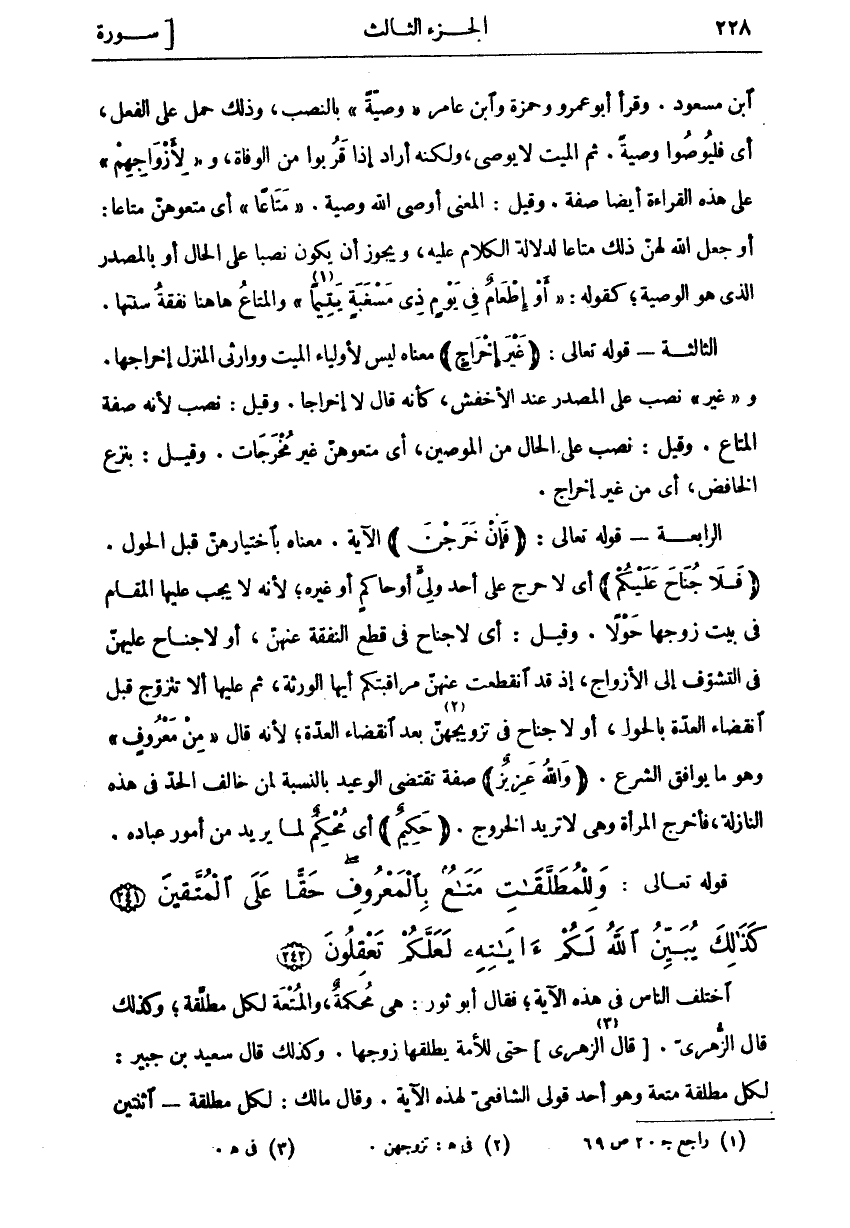 ٢٢٨ الجـزء الثـالث [ ســورة
ٱبن مسعود . وقرأ أبو عمرو وحمزة وٱبن عامر « وصيّةً » بالنصب، وذلك حمل على الفعل،
أى فليُوصُوا وصيةً . ثم الميت لا يوصى، ولكنه أراد إذا قَرُبوا من الوفاة، و « لِأَزْوَاجِهِمْ »
على هذه القراءة أيضا صفة . وقيل : المعنى أوصى الله وصية . « مَتَاعًا » أى متعوهنّ متاعا :
أو جعل الله لهنّ ذلك متاعا لدلالة الكلام عليه، ويجوز أن يكون نصبا على الحال أو بالمصدر
الذى هو الوصية؛ كقوله : « أَوْ إِطْعَامٌ فِى يَوْمٍ ذِى مَسْغَبَةٍ يَتِيمًا (١) » والمتاعُ هاهنا نفقةُ سنتها .
الثالثـــة — قوله تعالى : ﴿ غَيْرَ إِخْرَاجٍ ﴾ معناه ليس لأولياء الميت ووارثى المنزل إخراجها .
و « غير » نصب على المصدر عند الأخفش، كأنه قال لا إخراجا . وقيل : نصب لأنه صفة
المتاع . وقيل : نصب على الحال من الموصين، أى متعوهنّ غير مُخْرَجَات . وقيــل : بنزع
الخافض، أى من غير إخراج .
الرابعـــة — قوله تعالى : ﴿ فَإِنْ خَرَجْنَ ﴾ الآية . معناه بٱختيارهنّ قبل الحول .
﴿ فَـلَا جُنَاحَ عَلَيْكُمْ ﴾ أى لا حرج على أحد ولىٍّ أو حاكمٍ أو غيره؛ لأنه لا يجب عليها المقـام
فى بيت زوجها حَوْلًا . وقيـل : أى لا جناح فى قطع النفقة عنهنّ ، أو لا جنـاح عليهنّ
فى التشوّف إلى الأزواج، إذ قد ٱنقطعت عنهنّ مراقبتكم أيها الورثة، ثم عليها ألا تتزوّج قبل
ٱنقضاء العدّة بالحول، أو لا جناح فى تزويجهنّ (٢) بعد ٱنقضاء العدّة؛ لأنه قال « مِنْ مَعْرُوفٍ »
وهو ما يوافق الشرع . ﴿ وَاللهُ عَزِيزٌ ﴾ صفة تقتضى الوعيد بالنسبة لمن خالف الحدّ فى هذه
النازلة، فأخرج المرأة وهى لا تريد الخروج . ﴿ حَكِيمٌ ﴾ أى مُحْكِمٌ لمـا يريد من أمور عباده .
قوله تعـالى : وَلِلْمُطَلَّقَٰتِ مَتَٰعٌۢ بِٱلْمَعْرُوفِۖ حَقًّا عَلَى ٱلْمُتَّقِينَ ۝٢٤١
كَذَٰلِكَ يُبَيِّنُ ٱللَّهُ لَكُمْ ءَايَٰتِهِۦ لَعَلَّكُمْ تَعْقِلُونَ ۝٢٤٢
ٱختلف الناس فى هذه الآية؛ فقال أبو ثور : هى مُحكمةٌ، والمُتْعَة لكل مطلّقة؛ وكذلك
قال الزُّهرىّ . [ قال الزهرى (٣) ] حتى للأمة يطلقها زوجها . وكذلك قال سعيد بن جبير :
لكل مطلقة متعة وهو أحد قولى الشافعىّ لهذه الآية . وقال مالك : لكل مطلقة — ٱثنتين
(١) راجع جـ ٢٠ ص ٦٩ (٢) فى هـ : تزوجهن . (٣) فى هـ .